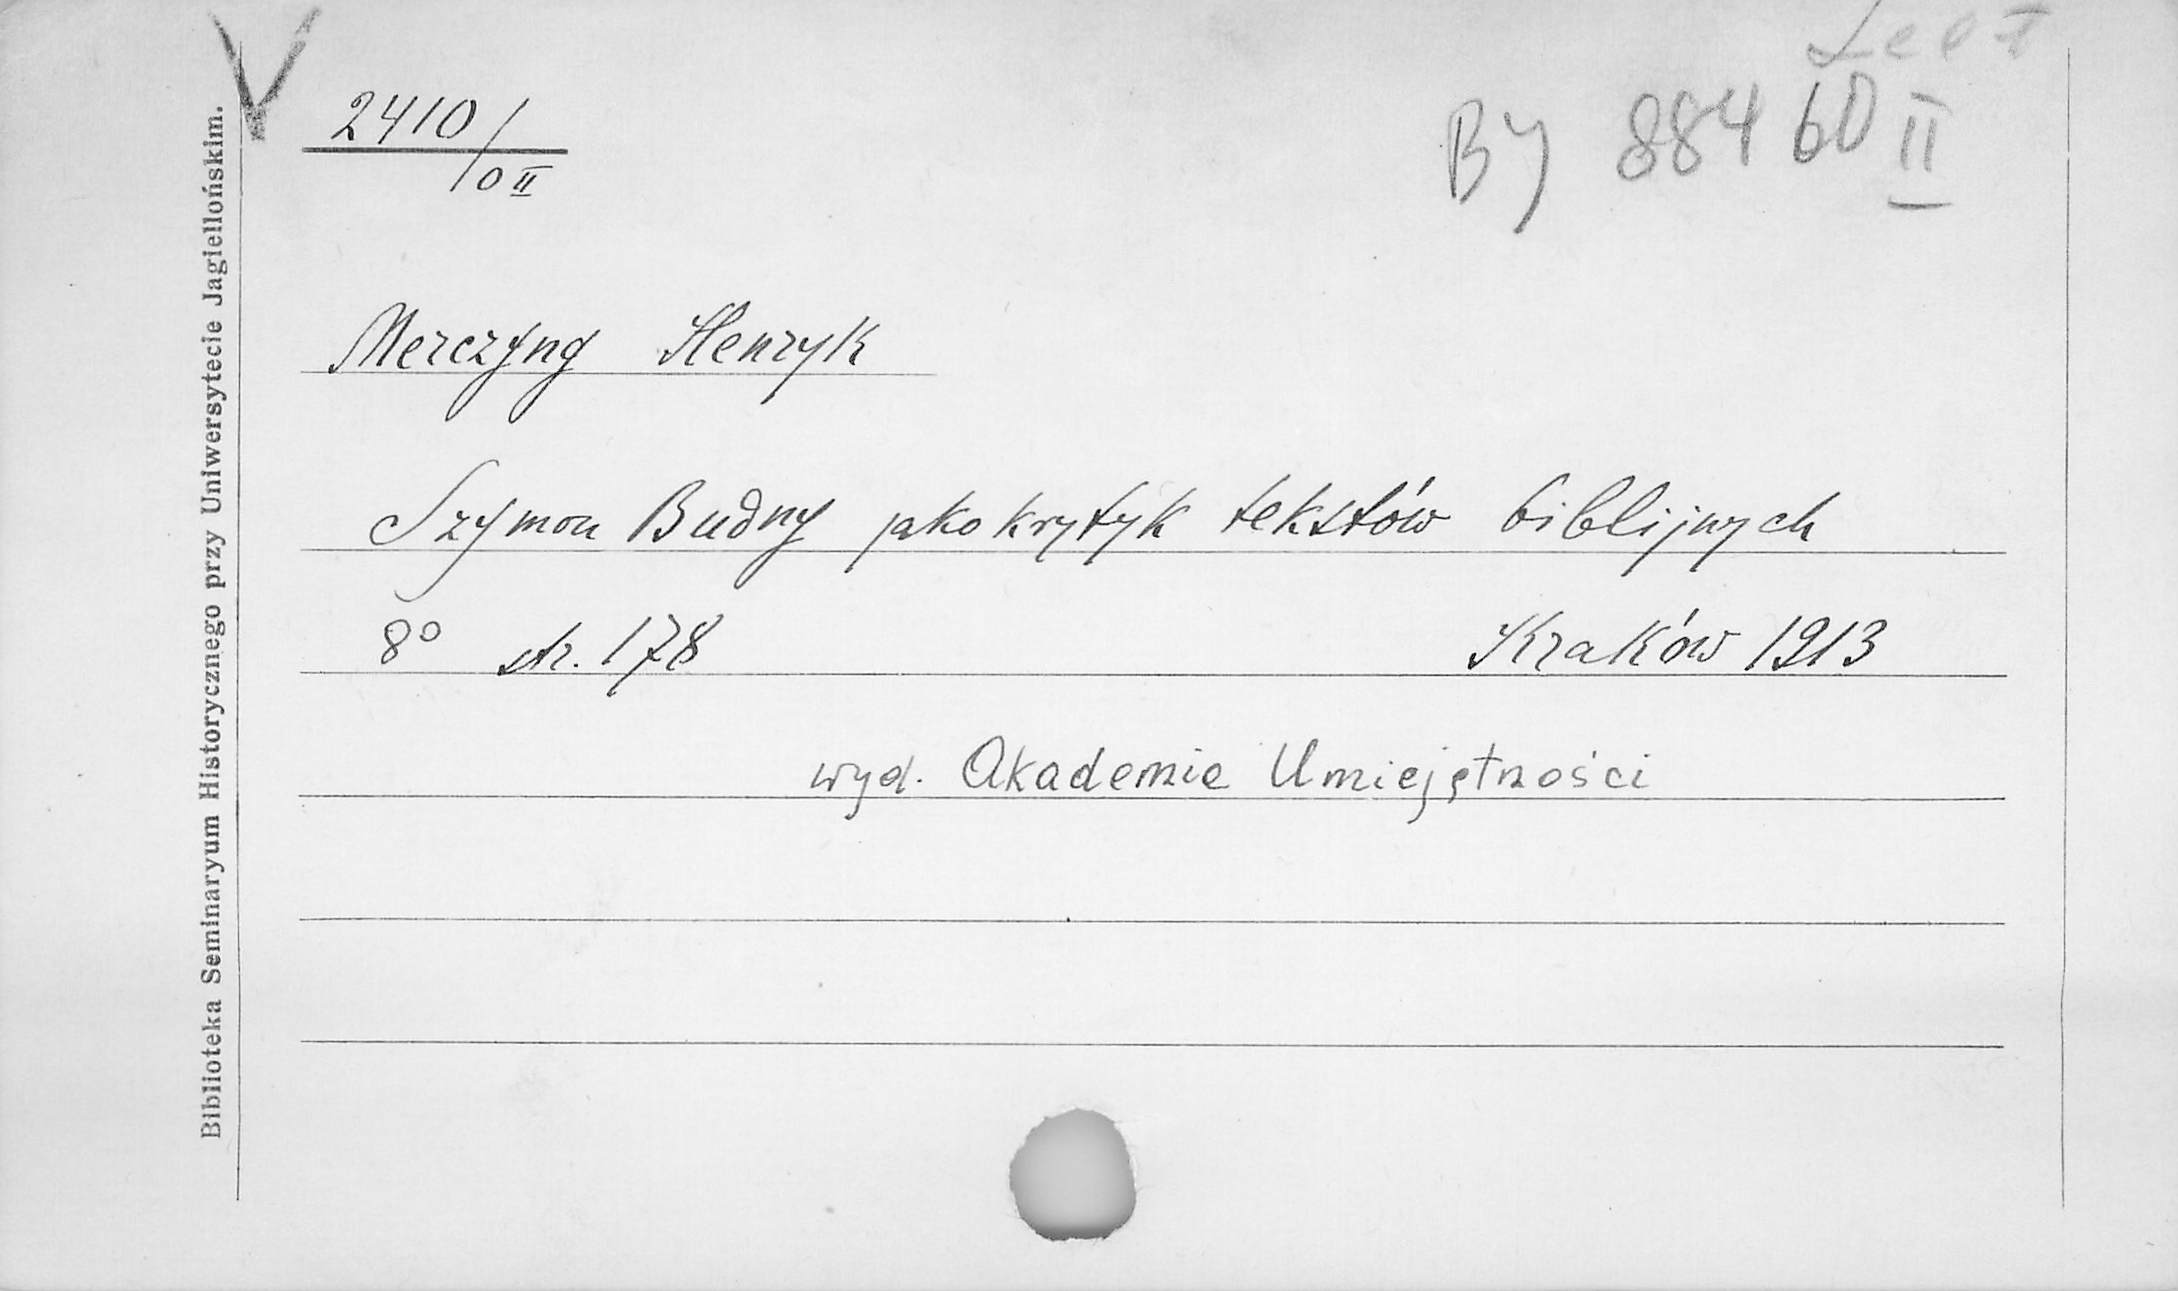 2410/0 II
By 88460 II
Merczyng Henryk
Szymon Budny jako krytyk tekstów biblijnych
8° str. 178 Kraków 1913
wyd. Akademie Umiejętności
Biblioteka Seminaryum Historycznego przy Uniwersytecie Jagiellońskim.